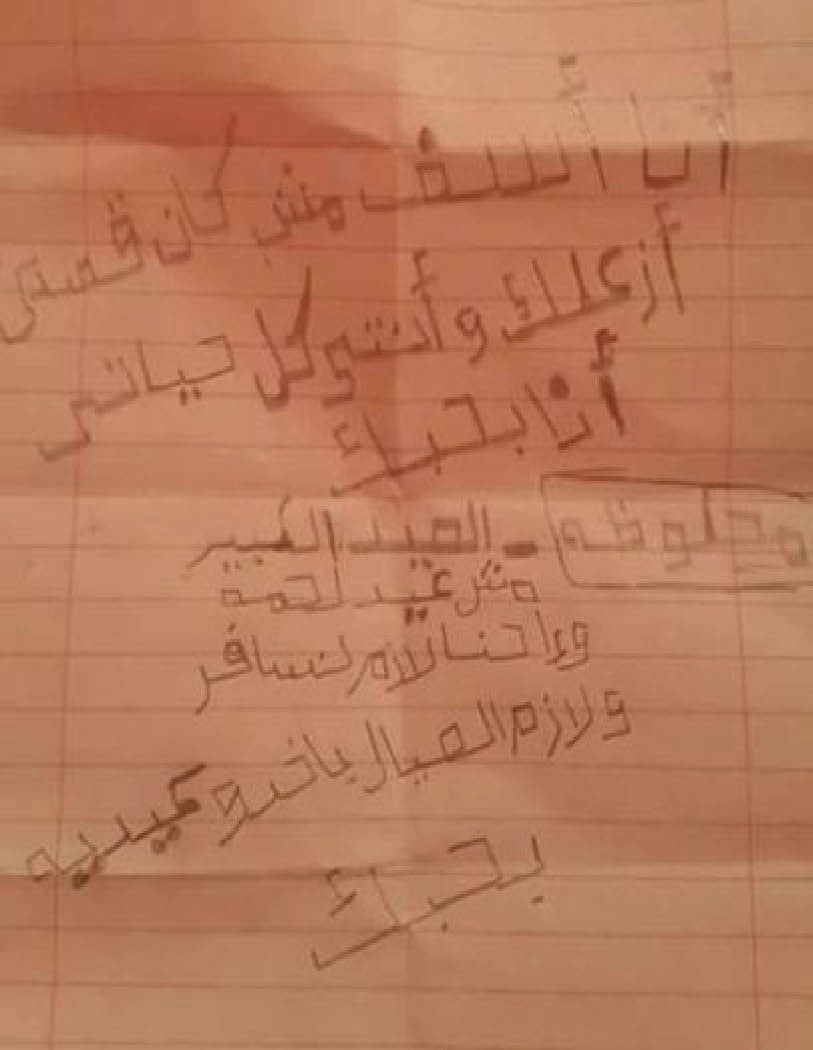 أنا أسف مش كان قصدى
أزعلك وأنتو كل حياتى
أنا بحبك
محلوظه - العيد الكبير
مش عيد لحمة
وءاحنا لازم نسافر
ولازم العيال ياخدو عيديه
بحبك